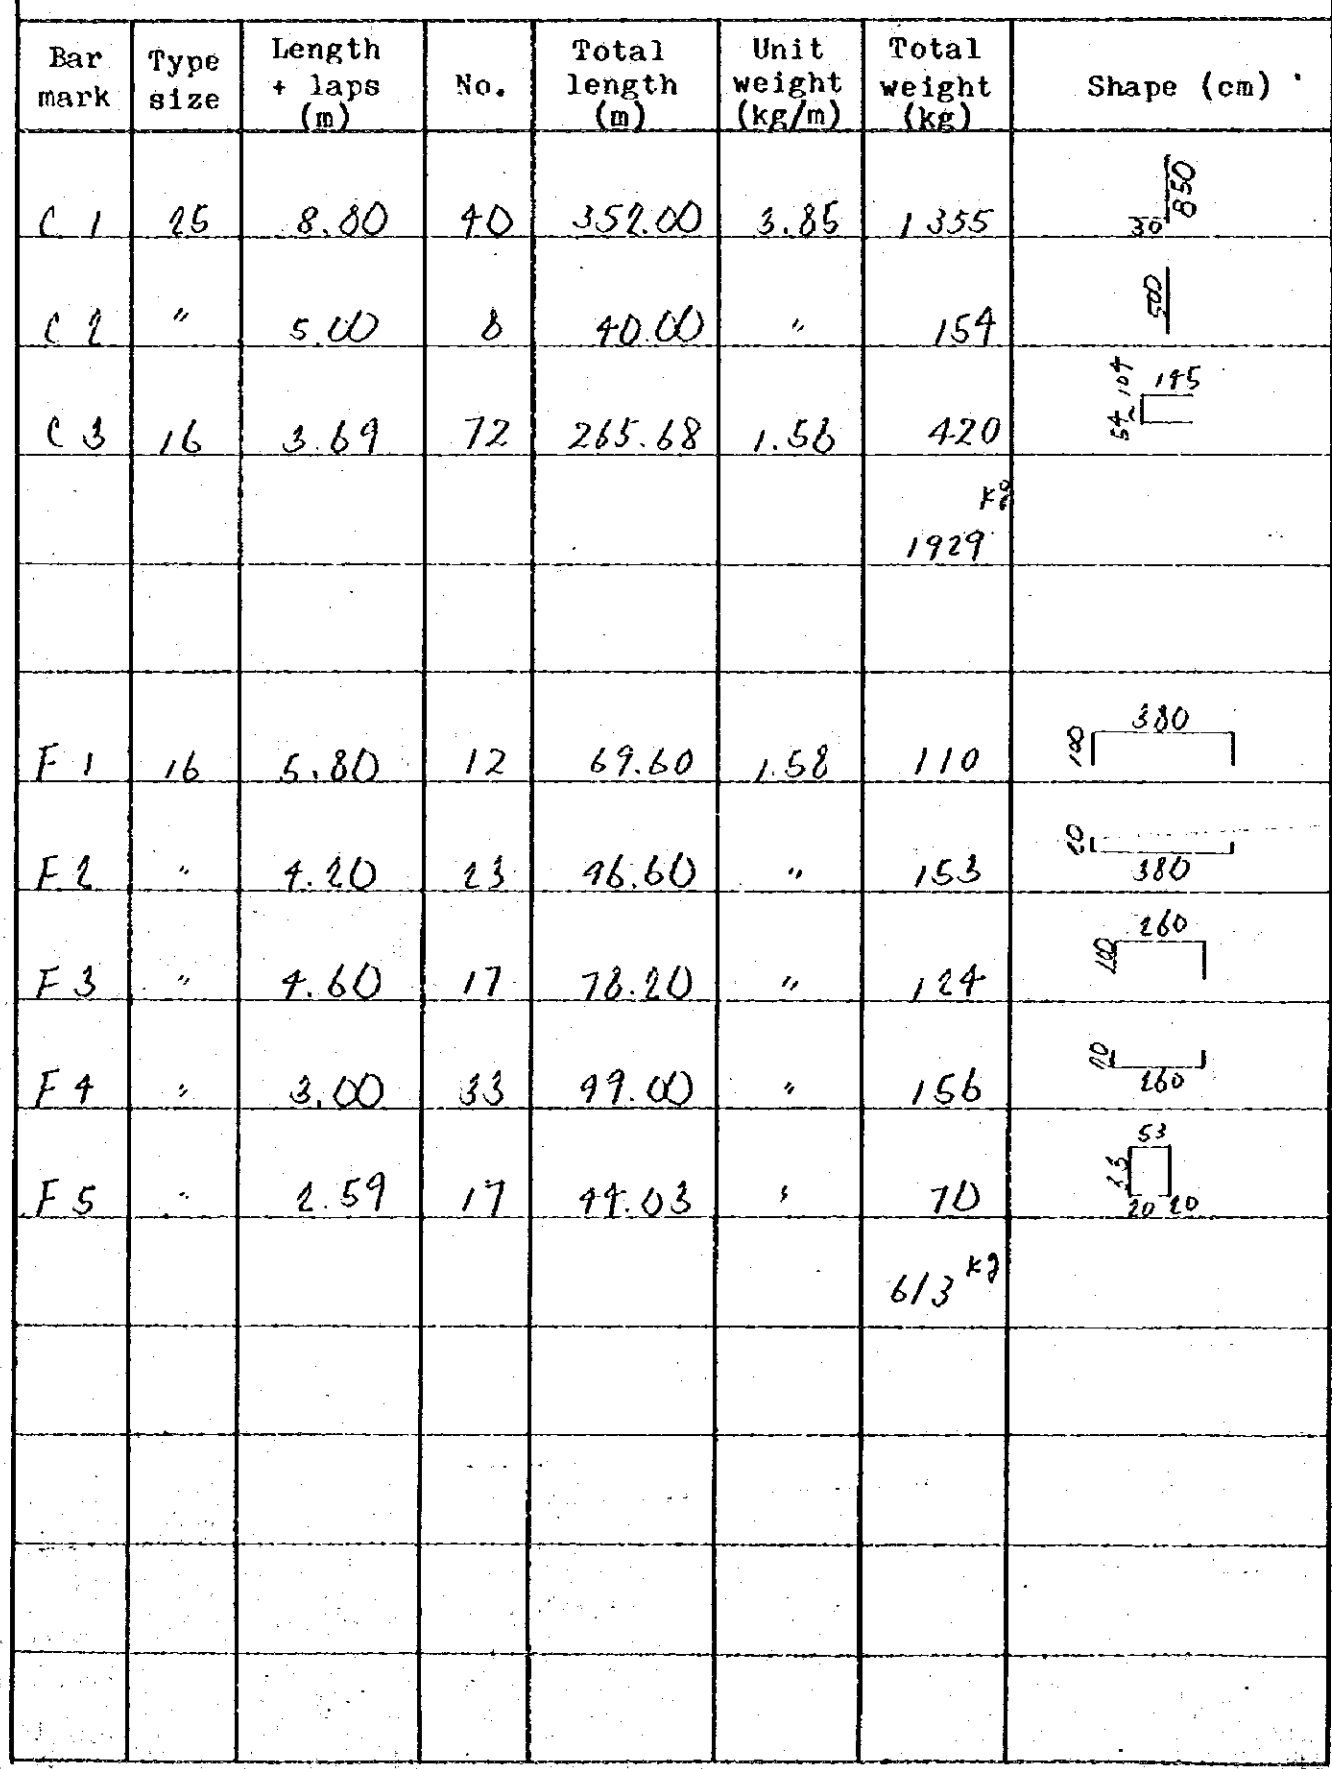 Bar mark | Type size | Length + laps (m) | No. | Total length (m) | Unit weight (kg/m) | Total weight (kg) | Shape (cm)
C 1 | 25 | 8.80 | 40 | 352.00 | 3.85 | 1355 | 30 850
C 2 | " | 5.00 | 8 | 40.00 | " | 154 | 500
C 3 | 16 | 3.69 | 72 | 265.68 | 1.58 | 420 | 145
kg
1929
F 1 | 16 | 5.80 | 12 | 69.60 | 1.58 | 110 | 100 380
F 2 | " | 4.20 | 23 | 96.60 | " | 153 | 20 380
F 3 | " | 4.60 | 17 | 78.20 | " | 124 | 100 260
F 4 | " | 3.00 | 33 | 99.00 | " | 156 | 20 260
F 5 | " | 2.59 | 17 | 44.03 | " | 70 | 53 20 20
613 kg